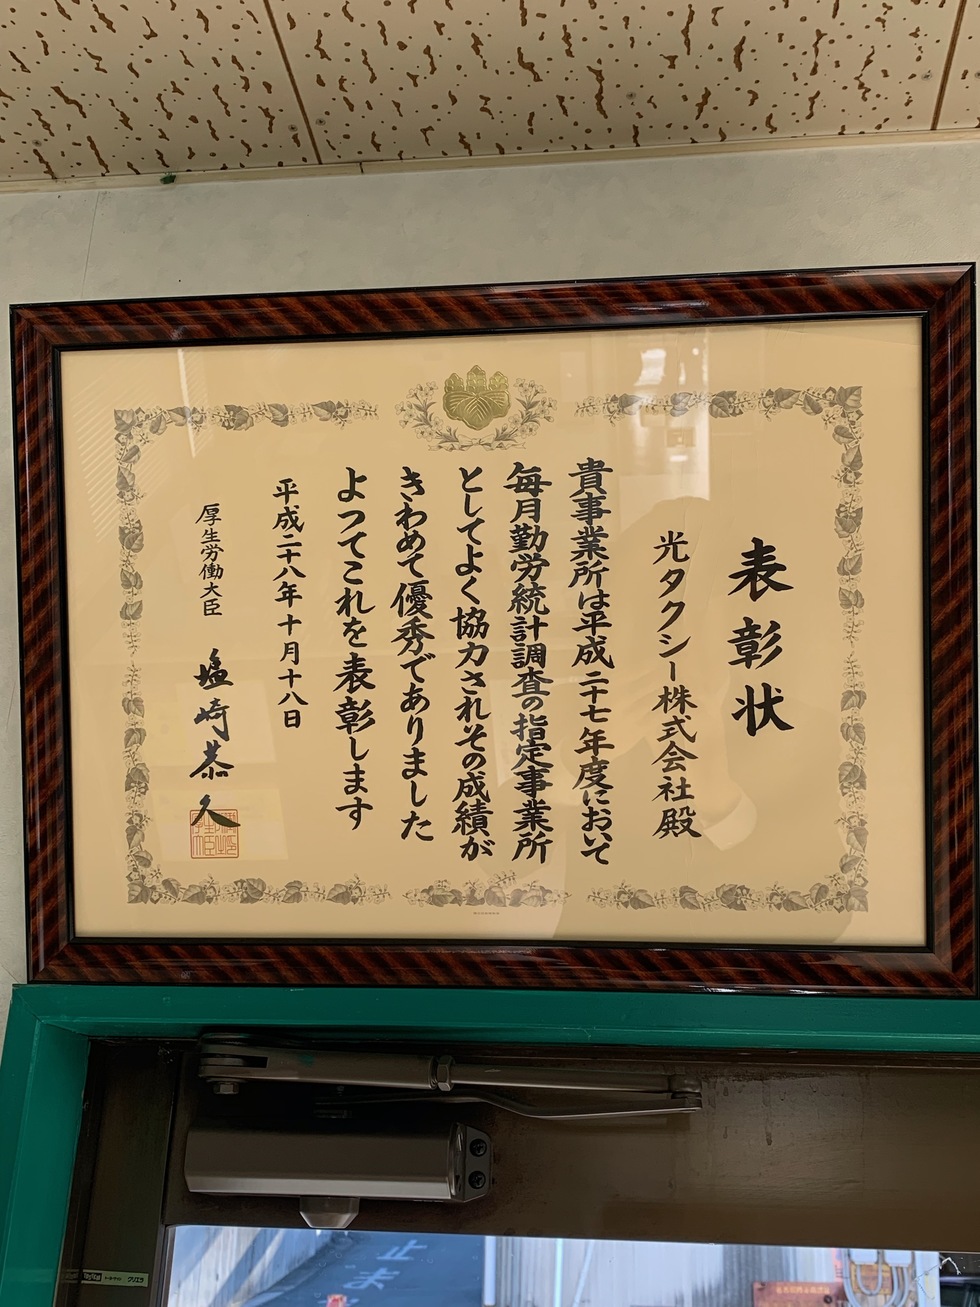 表彰状
光タクシー株式会社殿
貴事業所は平成二十七年度において
毎月勤労統計調査の指定事業所
としてよく協力されその成績が
きわめて優秀でありました
よつてこれを表彰します
平成二十八年十月十八日
厚生労働大臣 塩崎恭久